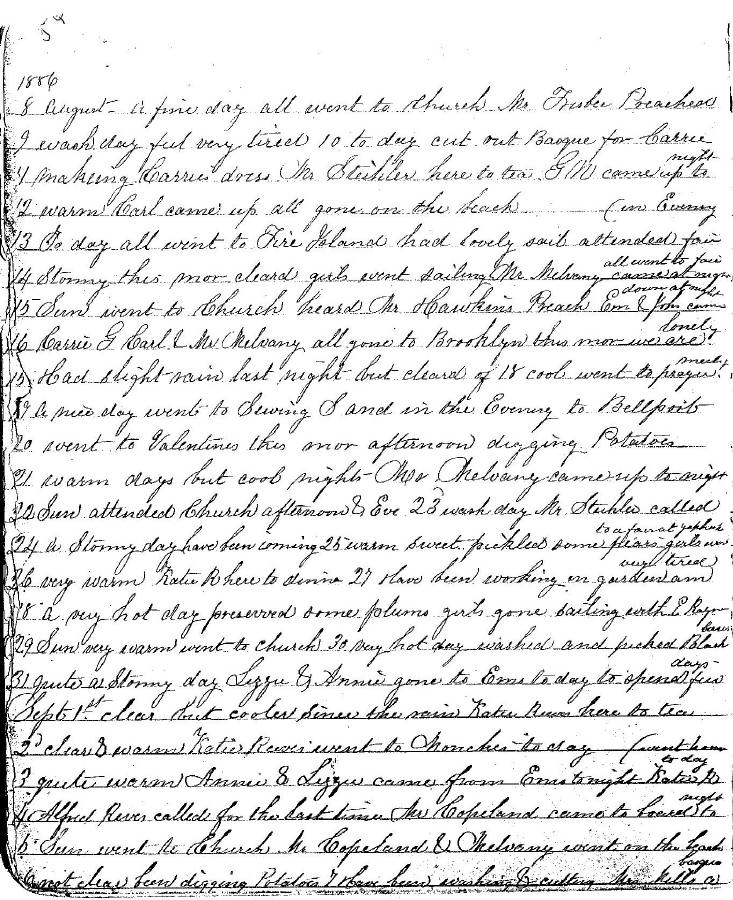 1886
8 August - A fine day all went to Church Mr Preached
9 wash day feel very tired 10 to day cut out Basque for Carrie
11 making Carries dress Mr Steihler here to tea G M came up to night
12 warm Carl came up all gone on the beach (in Evenng
13 To day all went to Fire Island had lovely sail attended fair
14 Stormy this mor cleard girls went sailing Mr Melvany came at night all went to fair
15 Sun went to Church heard Mr Hawkins Preach Em & John came down at night
16 Carrie G Carl & Mr Melvany all gone to Brooklyn this mor we are lonely
Had slight rain last night but cleard of 18 cool went to prayer meet
19 A nice day went to Sewing S and in the Evenng to Bellport
20 went to Valentines this mor afternoon digging Potatoes
21 warm days but cool nights - Mr Melvany came up to night
22 Sun attended Church afternoon & Eve 23 wash day Mr Steihler called
24 a Stormy day have been ironing 25 warm sweet pickled some pears girls to a fair at
26 very warm Katie R here to dinner 27 Have been working in garden am very tired
28 a very hot day preserved some plums girls gone sailing with E
29 Sun very warm went to church 30 very hot day washed and picked Black
31 quite a Stormy day Lizzie & Annie gone to Ems to day to spend few days
Sept 1st clear but cooler since the rain Katie Reeves here to tea
2d clear & warm Katie Reeves went to to day (went home to day
3 quite warm Annie & Lizzie came from Ems to night Katie R
4 Alfred Reeves called for the last time Mr Copeland came to board to night
5 Sun went to Church Mr Copeland & Melvany went on the beach
6 not clear been digging Potatoes 7 Have been washing & cutting Mrs Wells a basque